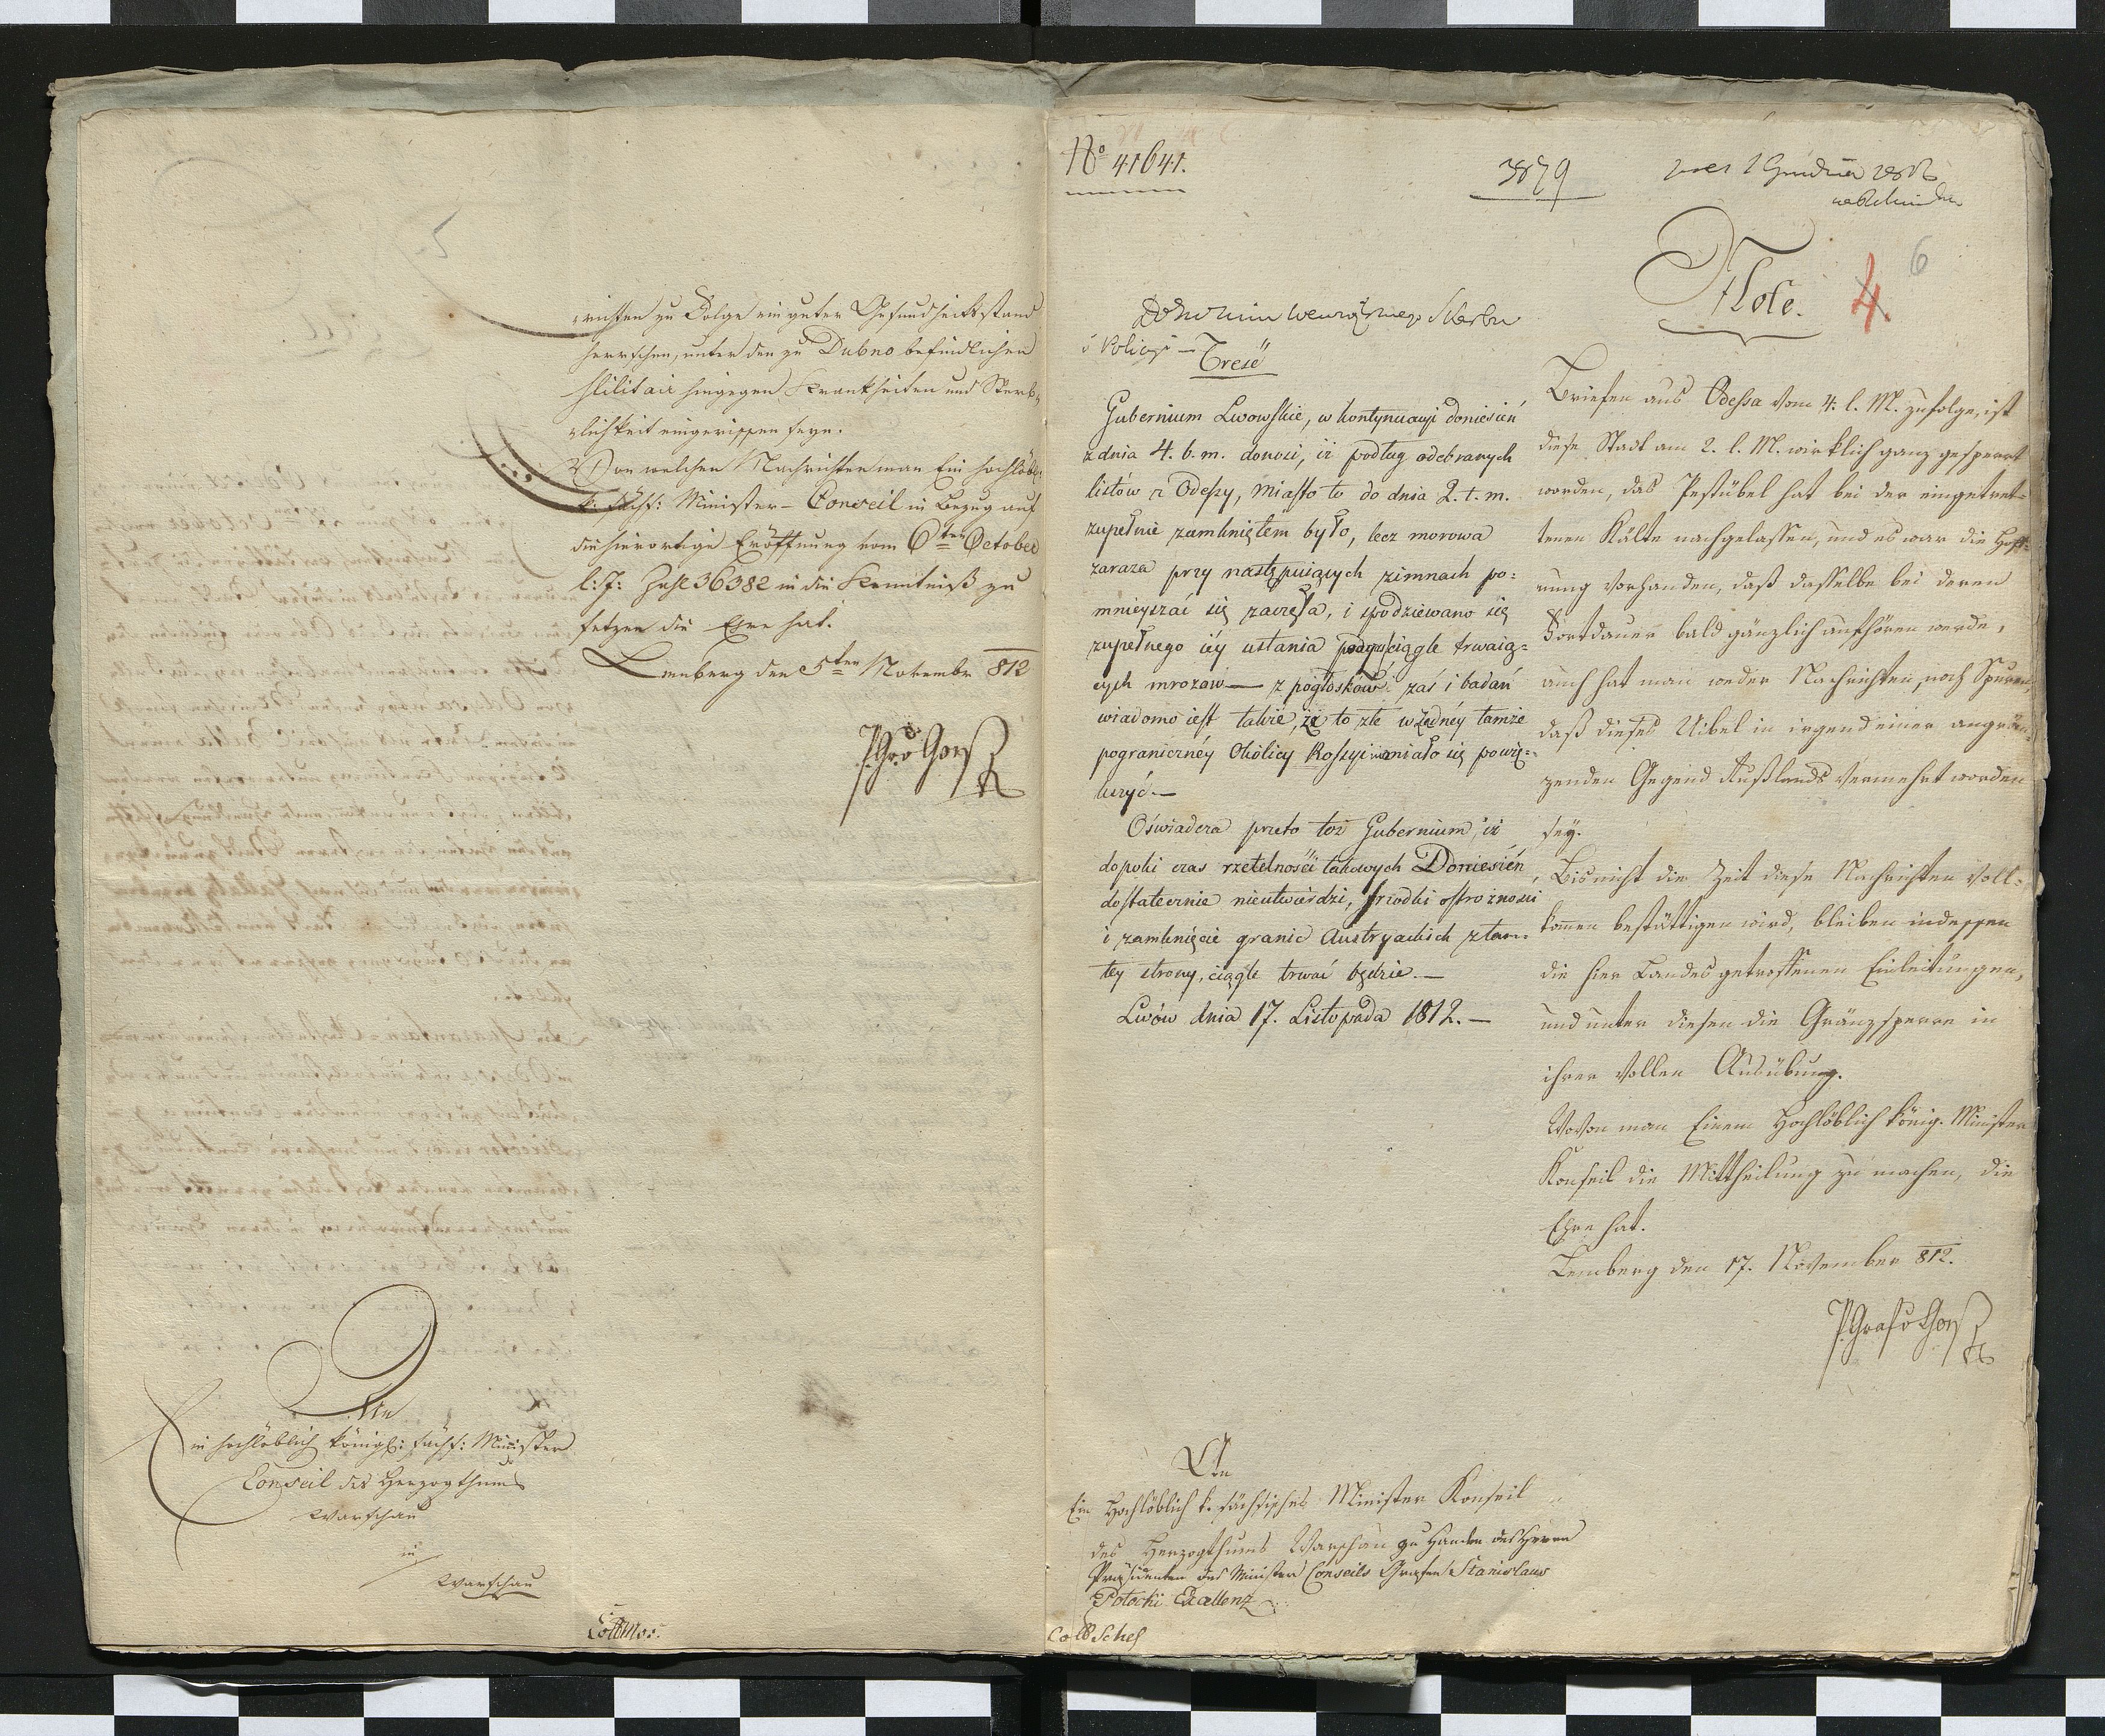 richten zu Folge ein guter Gesundheitsstand
herrschen, unter den zu Dubno befindlichen
Militair hingegen Krankheiten und Sterb-
lichkeit eingerissen seyn.
Von welchen Nachrichten man Ein hochlöbl:
k: sächs: Minister-Conseil in Bezug auf
die hierortige Eröffnung vom 6ten October
l: J: Zahl 36382 in die Kenntniß zu
setzen die Ehre hat.
Lemberg den 5ten November 812
An
Ein hochlöblich königl: sächs: Minister
Conseil des Herzogthums
Warschau
in
Warschau
No 41641.
3879
Note.
4
6
i Policyi —
Treść
Gubernium Lwowskie, w kontynuacyi doniesień
z dnia 4. b. m. donosi, iż podług odebranych
listów z Odessy, Miasto to do dnia 2. t. m.
zupełnie zamkniętem było, lecz morowa
zaraza przy następuiących zimnach po=
mnieyszać się zaczęła, i spodziewano się
zupełnego iéy ustania ciągle trwaią=
cych mrozów — z pogłosków zaś i badań
wiadomo iest także, że to złe w żadnéy tamże
pogranicznéy Okolicy Rossyi niemiało się powię=
kszyć. —
Oświadcza przeto toż Gubernium, iż
dopoki czas rzetelności takowych Doniesień
dostatecznie nieutwierdzi, srzodki ostrożności
i zamknięcie granic Austryackich z tam=
tey strony, ciągle trwać będzie. —
Lwów dnia 17. Listopada 1812. —
Briefen aus Odessa vom 4. l. M. zufolge, ist
diese Stadt am 2. l. M. wirklich ganz gesperrt
worden, das Pestübel hat bei der eingetret=
tenen Kälte nachgelassen, und es war die Hoff=
nung vorhanden, daß dasselbe bei deren
Fortdauer bald gänzlich aufhören werde,
auch hat man weder Nachrichten, noch Spuren,
daß dieses Uibel in irgend einer angrän=
zenden Gegend Rußlands vermehrt worden
sey.
Bis nicht die Zeit diese Nachrichten voll=
kommen bestättigen wird, bleiben indessen
die hier Landes getroffenen Einleitungen,
und unter diesen die Gränzsperre in
ihrer vollen Ausübung.
Wovon man Einem Hochlöblich könig. Minister
Konseil die Mittheilung zu machen, die
Ehre hat.
Lemberg den 17. November 812.
An
Ein Hochlöblich k. sächsisches Minister Konseil
des Herzogthums Warschau zu Handen des Herrn
Präsidenten des Minister Conseils Grafen Stanislaus
Potocki Excellenz